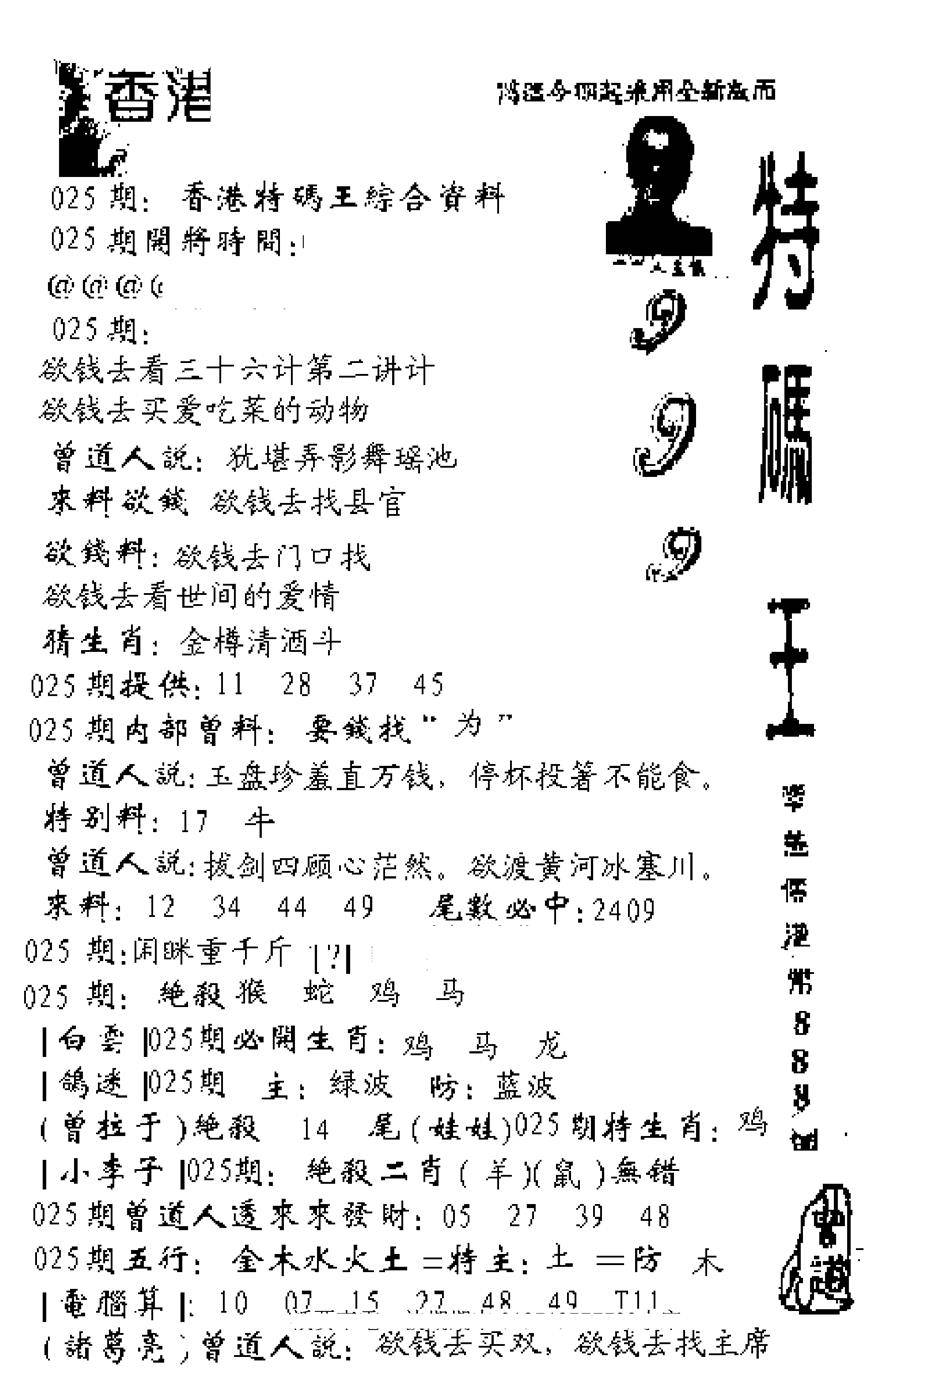 香港
025期：香港特碼王綜合資料
025期開將時間：
@@@@
025期：
欲钱去看三十六计第二讲计
欲钱去买爱吃菜的动物
曾道人説：犹堪弄影舞瑶池
來料欲錢 欲钱去找县官
欲錢料：欲钱去门口找
欲钱去看世间的爱情
猜生肖：金樽清酒斗
025期提供：11 28 37 45
025期内部曾料：要錢找“为”
曾道人説：玉盘珍羞直万钱，停杯投箸不能食。
特别料：17 牛
曾道人説：拔剑四顾心茫然。欲渡黄河冰塞川。
來料：12 34 44 49 尾數必中：2409
025期：闲眯重千斤 [?]
025期：絶殺猴 蛇 鸡 马
|白雲|025期必開生肖：鸡 马 龙
|鴿迷|025期 主：绿波 防：蓝波
(曾拉于)絶殺 14 尾(娃娃)025期特生肖：鸡
|小李子|025期：絶殺二肖(羊)(鼠)無错
025期曾道人透來來發財：05 27 39 48
025期五行：金木水火土=特主：土 =防 木
|電腦算|：10 07 15 27 48 49 T11
(諸葛亮)曾道人説：欲钱去买双，欲钱去找主席
999
特碼王
港幣888
曾道